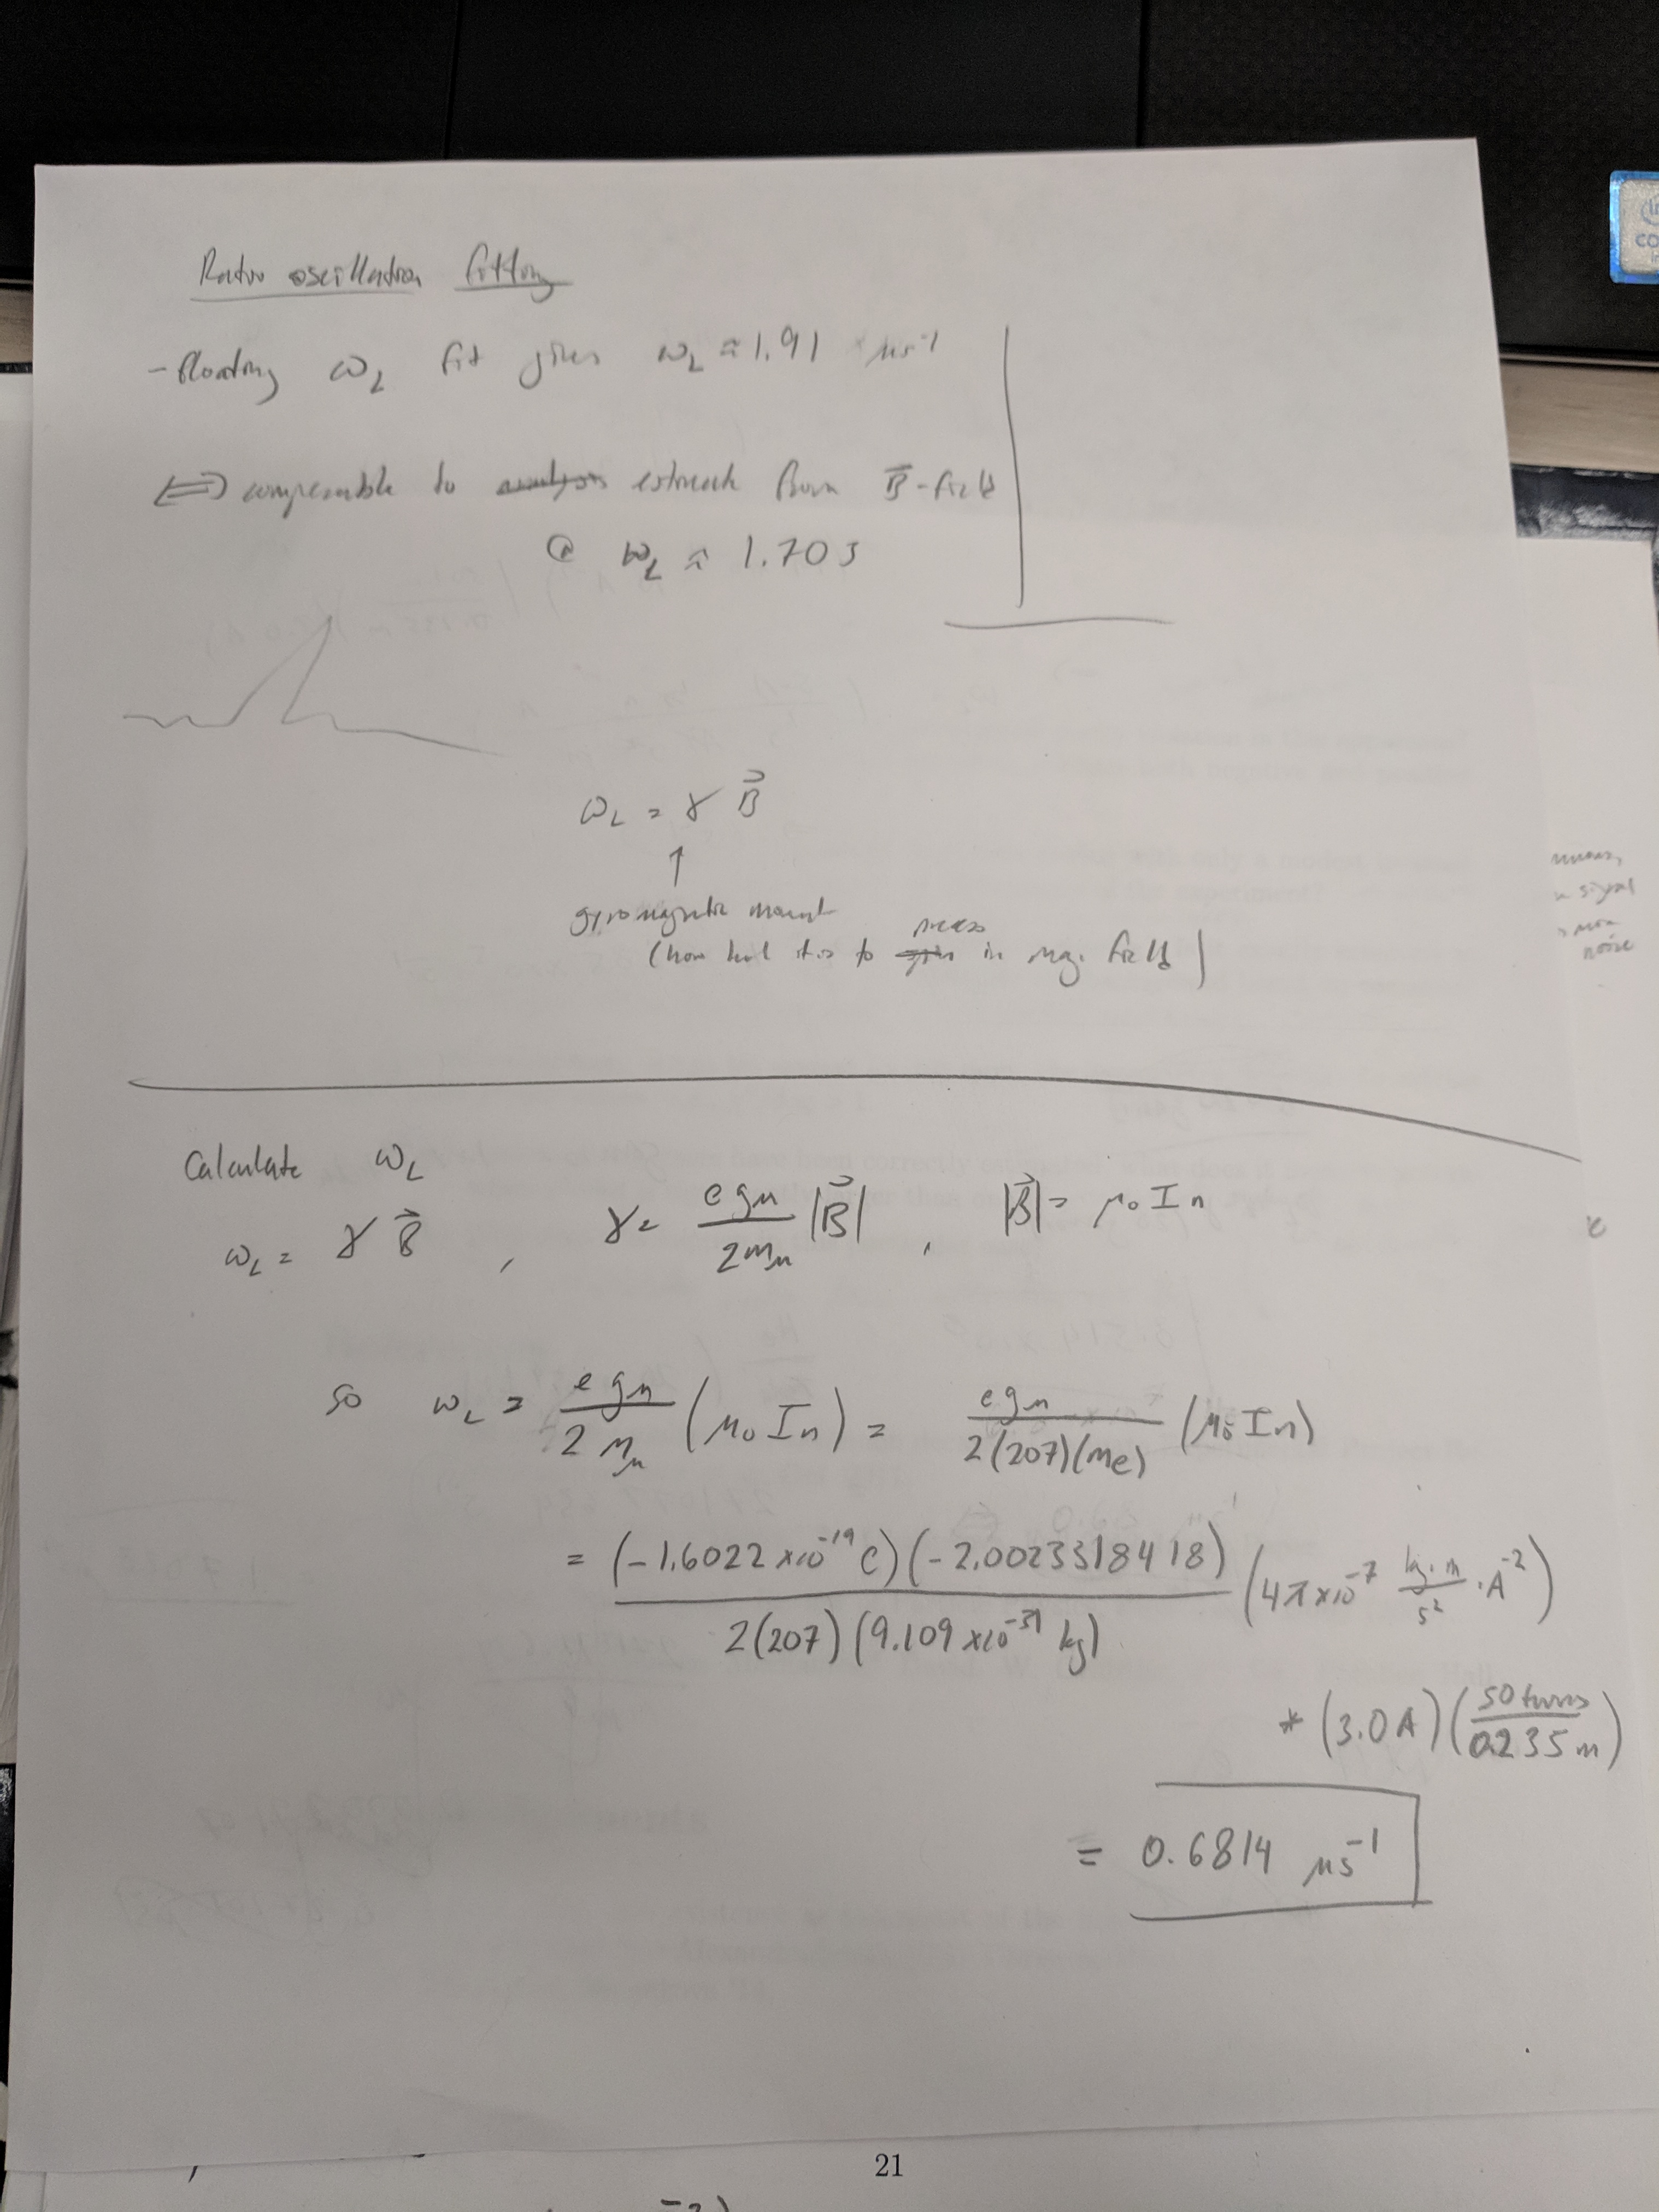 Ratio oscillation fitting
- floating ω_L fit gives ω_L ≈ 1.91 μs⁻¹
⟺ comparable to estimate from B⃗-field
@ ω_L ≈ 1.703
ω_L = γ B⃗
↑
gyromagnetic moment
(how hard it is to precess in mag. field)
Calculate ω_L
ω_L = γ B⃗ , γ = e g_μ / 2 m_μ |B⃗| , |B⃗| = μ₀ I n
so ω_L = e g_μ / 2 m_μ (μ₀ I n) = e g_μ / 2(207)(m_e) (μ₀ I n)
= (-1.6022 ×10⁻¹⁹ C)(-2.0023318418) / 2(207)(9.109 ×10⁻³¹ kg) (4π×10⁻⁷ kg·m/s² · A⁻²)
* (3.0 A)(50 turns / 0.235 m)
= 0.6814 μs⁻¹
signal
noise
21